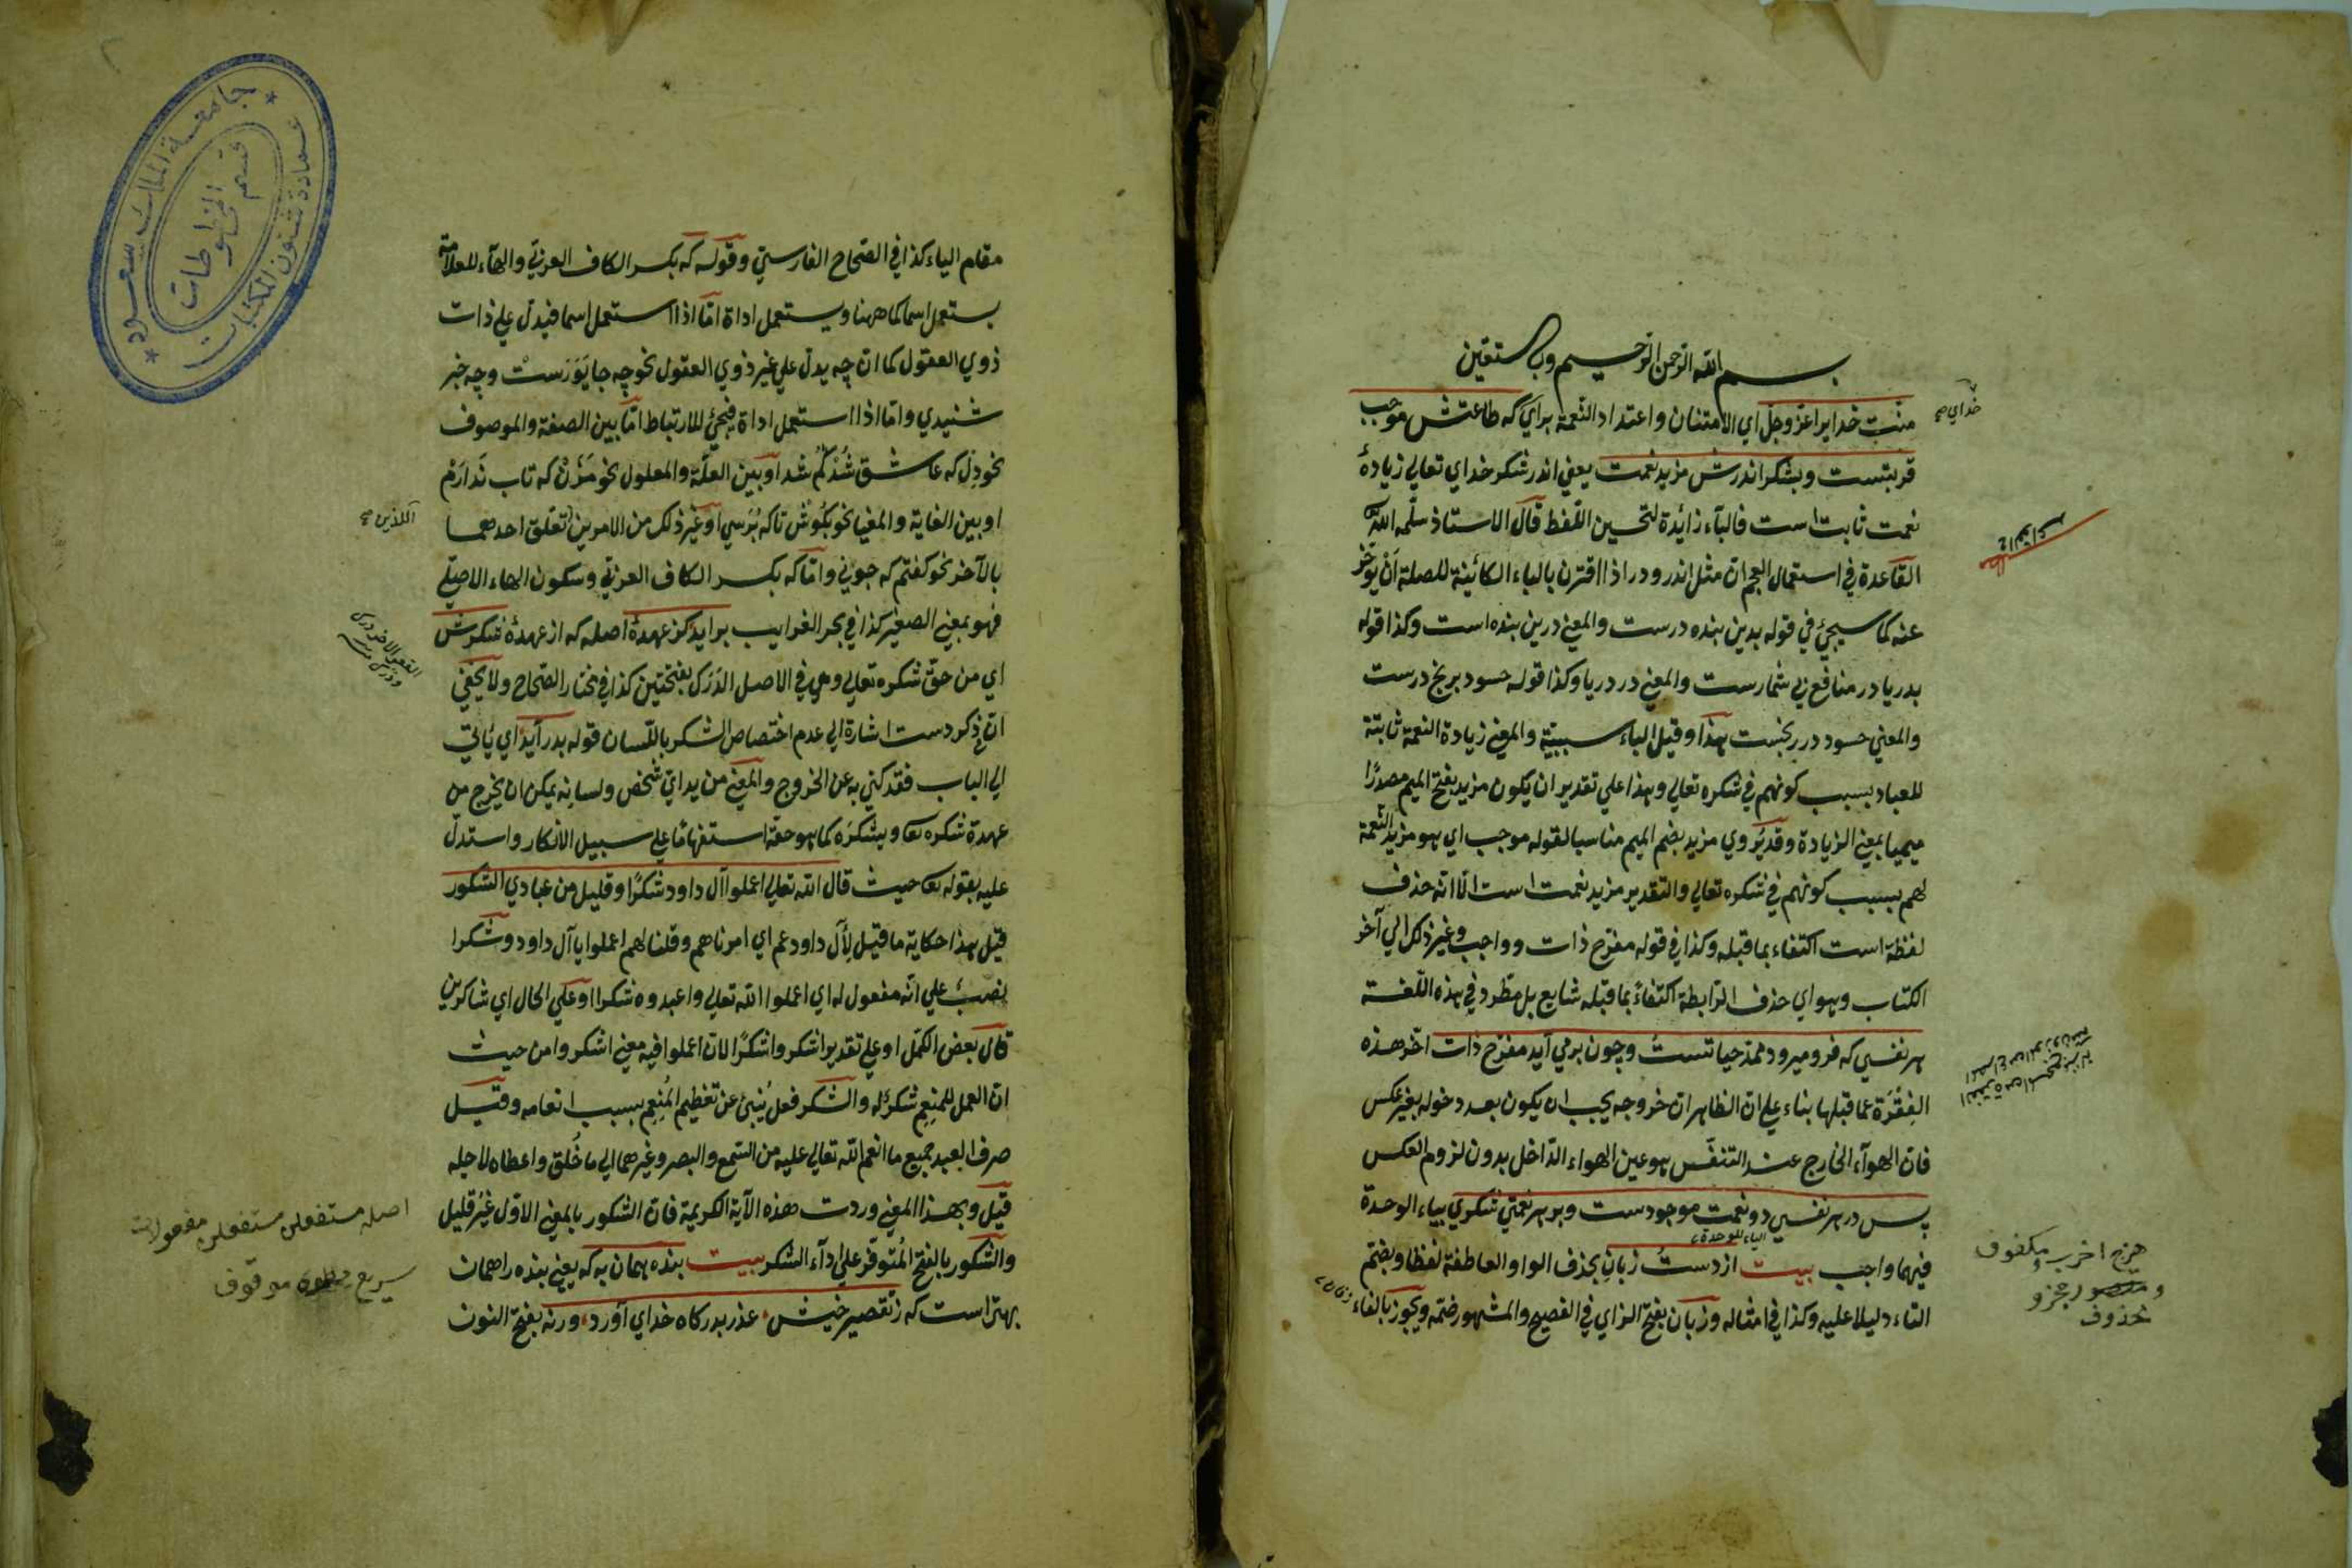 بسم الله الرحمن الرحيم وبك نستعين
منت خدايرا عز وجل اي الامتنان واعتداد النعمة براي كه طاعتش موجب
قربتست وبشكر اندرش مزيد نعمت يعني اندر شكر خداي تعالي زيادهٔ
نعمت ثابت است فالباء زائدة لتحسين اللفظ قال الاستاذ سلمه الله
القاعدة في استعمال العجم ان مثل اندر ودر اذا اقترن بالباء الكائينة للصلة ان يؤخر
عنه كما سيجيئ في قوله بدين بنده درست والمعني درين بنده است وكذا قوله
بدريا در منافع بي شمارست والمعني در دريا وكذا قوله حسود برنج درست
والمعني حسود در رنجست هذا وقيل الباء سببية والمعني زيادة النعمة ثابتة
للعباد بسبب كونهم في شكره تعالي وهذا علي تقدير ان يكون مزيد بفتح الميم مصدرًا
ميميا بمعني الزيادة وقد يُروي مزيد بضم الميم مناسبا لقوله موجب اي هو مزيد النعمة
لهم بسبب كونهم في شكره تعالي والتقدير مزيد نعمت است الا انه حذف
لفظة است اكتفاء بما قبله وكذا في قوله مفرح ذات وواجب وغير ذلك الي آخر
الكتاب وهو اي حذف الرابطة اكتفاءً بما قبله شايع بل مطّرد في هذه اللغة
هر نفسي كه فرو ميرود ممد حياتست وچون برمي آيد مفرح ذات اخر هذه
الفِقْرَة عما قبلها بناء علي ان الظاهر ان خروجه يجب ان يكون بعد دخوله بغير عكس
فان الهوآء الخارج عند التنفس هو عين الهواء الداخل بدون لزوم العكس
پس در هر نفسي دو نعمت موجودست وبر هر نعمتي شكري بياء الوحدة
الياء للوحدة
فيهما واجب بيت از دست زبانِ بحذف الواو العاطفة لفظا وبضم
التاء دليلا عليه وكذا في امثاله وزبان بفتح الزاي في الفصيح والمشهور ضمه ويجوز بالفاء
خداي صح
هزج اخرب مكفوف
محذوف
مقام الياء كذا في الصحاح الفارسي وقوله كه بكسر الكاف العربي والهآء للعلامة
يستعمل اسما كما ههنا ويستعمل اداة اما اذا استعمل اسما فيدل علي ذات
ذوي العقول كما ان چه يدل علي غير ذوي العقول نحو چه جايَ وَرَست وچه خبر
شنيدي واما اذا استعمل اداة فيجيئ للارتباط اما بين الصفة والموصوف
نحو دل كه عاشق شُد گم شد او بين العلة والمعلول نحو مَزَنْ كه تاب نَدارَم
او بين الغاية والمغيا نحو بكُوش تا كه بُرسي او غير ذلك من الامرين تعلق احدهما
بالآخر نحو كفتم كه جوني واما كه بكسر الكاف العربي وسكون الهاء الاصلي
فهو بمعني الصغير كذا في بحر الغرايب برايد كز عهدهٔ اصله كه از عهدهٔ شكرش
اي من حق شكره تعالي وهي في الاصل الدَرَك بفتحتين كذا في مختار الصحاح ولا يخفي
ان ذكر دست اشارة الي عدم اختصاص الشكر باللسان قوله بدر آيد اي يأتي
الي الباب فقد كني به عن الخروج والمعني من يداي شخص ولسانه يمكن ان يخرج من
عهدة شكره تع ويشكره كما هو حقه استفهامًا علي سبيل الانكار واستدل
عليه بقوله تع حيث قال الله تعالي اعملوا آل داود شكرًا وقليل من عبادي الشكور
قيل هذا حكاية ما قيل لآل داود عم اي امرناهم وقلنا لهم اعملوا يا آل داود وشكرا
نصبٌ علي انه مفعول له اي اعملوا الله تعالي واعبدوه شكرا او علي الحال اي شاكرين
قال بعض الكمّل او علي تقدير اشكروا شكرًا لان اعملوا فيه معني اشكروا من حيث
ان العمل للمنعِم شكرٌ له والشكر فعل يُنبئ عن تعظيم المُنعِم بسبب انعامه وقيل
صرف العبد جميع ما انعم الله تعالي عليه من السمع والبصر وغيرهما الي ما خُلق واعطاه لاجله
قيل وبهذا المعني وردت هذه الآية الكريمة فان الشكور بالمعني الاول غيرُ قليل
والشكور بالفتح المُتوفر علي ادآء الشكر بيت بنده همان به كه يعني بنده را همان
بهتر است كه ز تقصير خيش عذر بدركاه خداي آورد ورنه بفتح النون
اللذين صح
اصله مستفعلن مستفعلن مفعولات
سريع مطوي موقوف
جامعة الملك سعود
عمادة شئون المكتبات
قسم المخطوطات